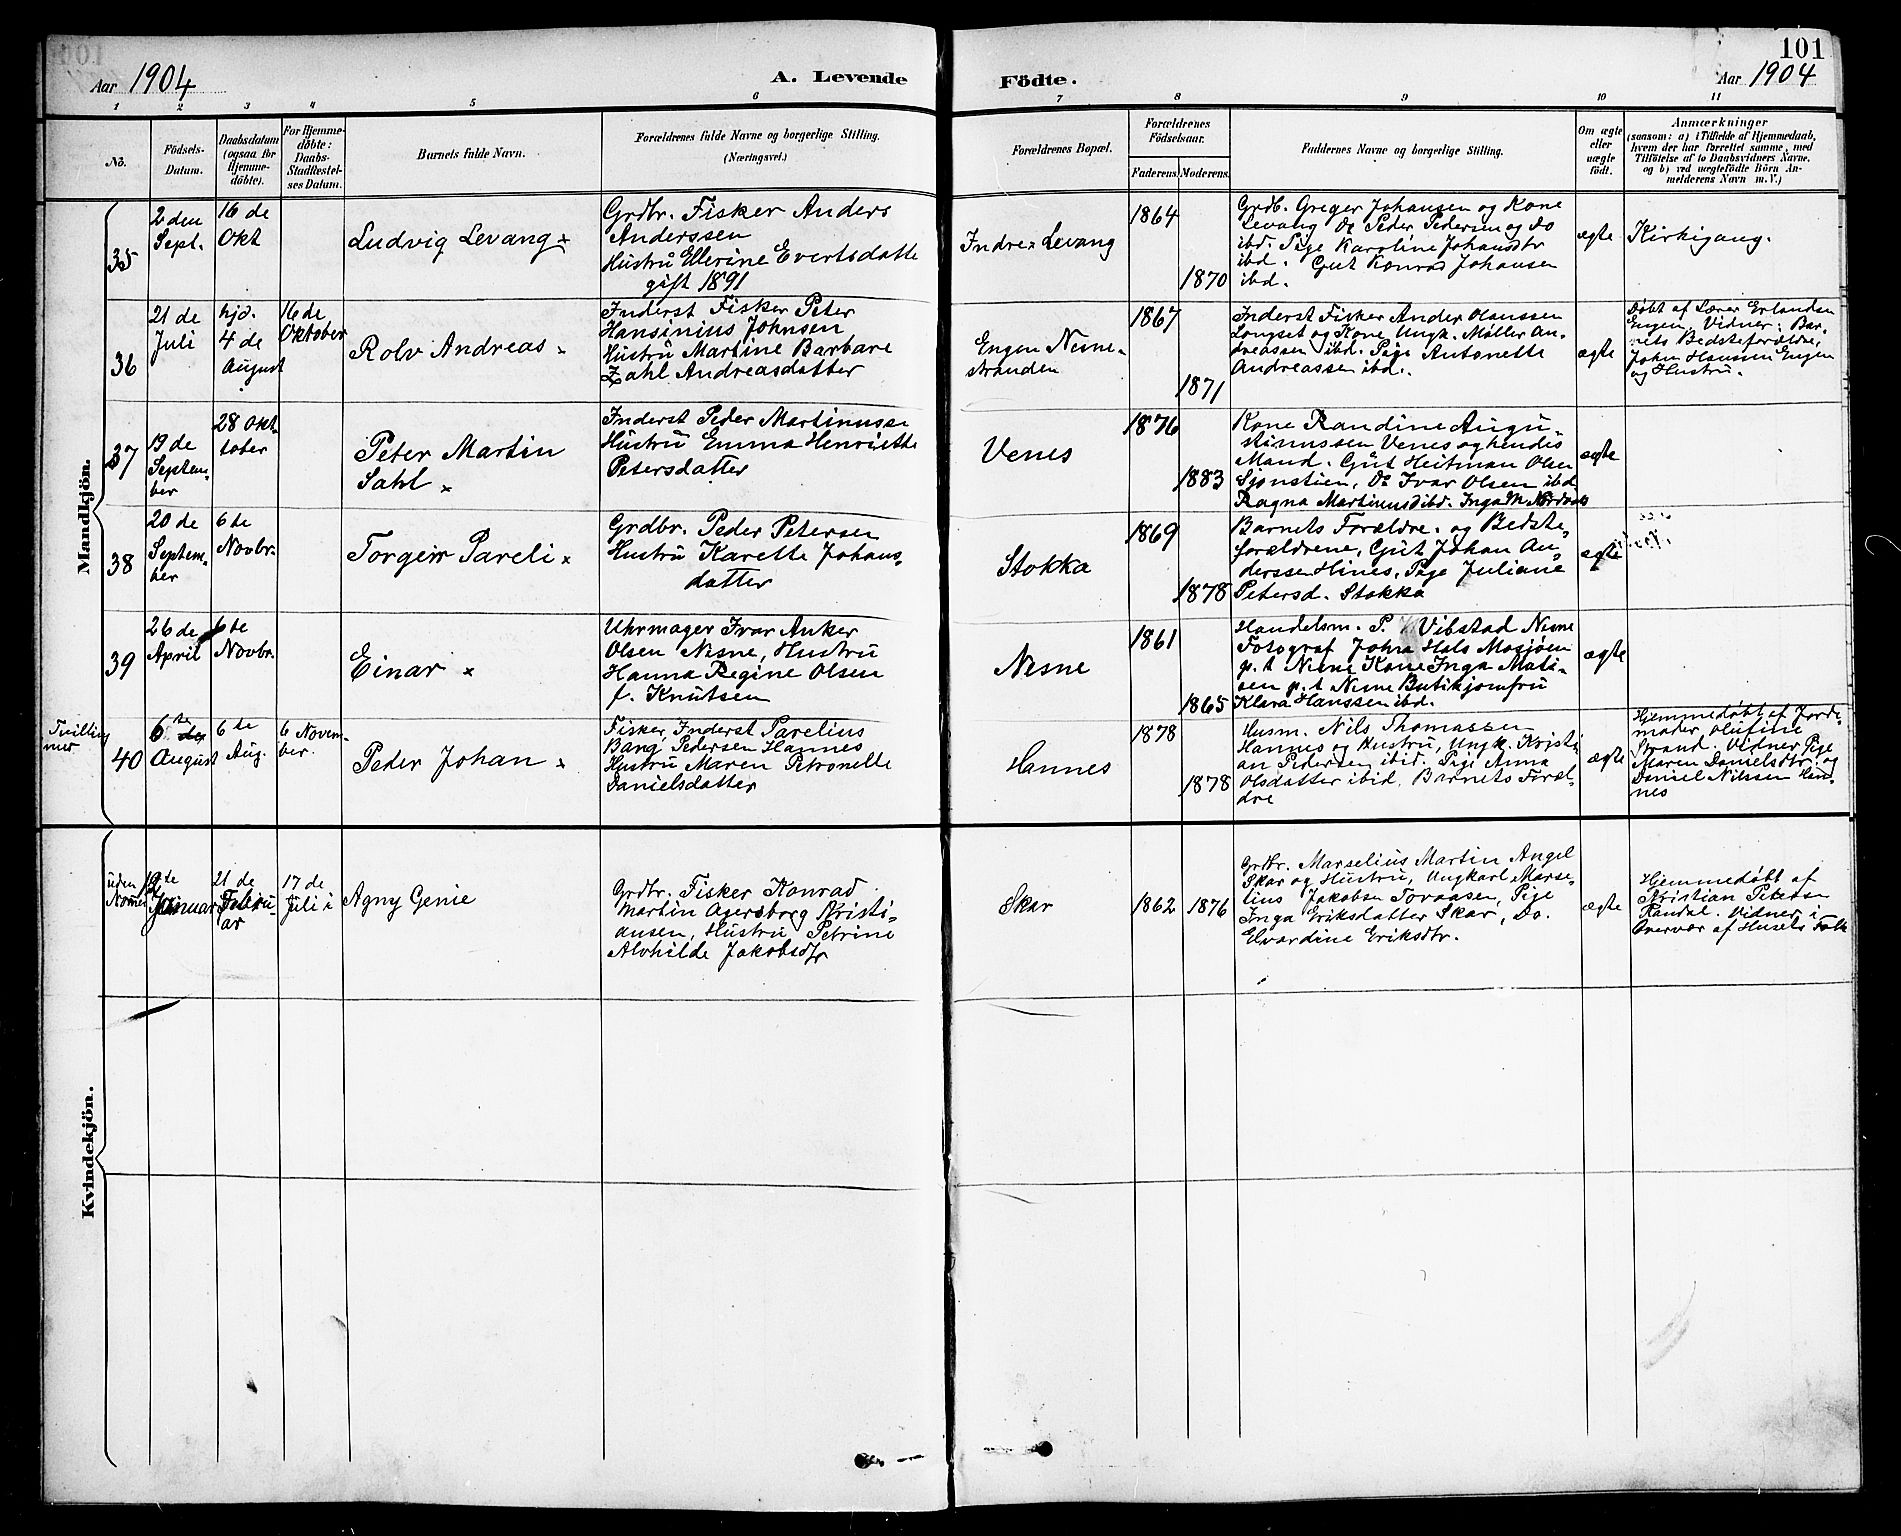 101
Aar 1904
A. Levende
Födte.
Aar 1904
1 2 3 4 5 6 7 8 9 10 11
No.
Födsels-
Datum.
Daabsdatum
(ogsaa for
Hjemme-
döbte).
For Hjemme-
döbte:
Daabs-
Stadfæstel-
ses Datum.
Barnets fulde Navn.
Forældrenes fulde Navne og borgerlige Stilling.
(Næringsvei.)
Forældrenes Bopæl.
Forældrenes
Födselsaar.
Faderens.
Moderens.
Faddernes Navne og borgerlige Stilling.
Om ægte
eller
uægte
födt.
Anmærkninger
(saasom: a) i Tilfælde af Hjemmedaab,
hvem der har forrettet samme, med
Tilföielse af to Daabsvidners Navne,
og b) ved uægtefödte Börn An-
melderens Navn m. V.)
Mandkjön.
35
2den
Sept.
16 de
Okt
Ludvig Levang x
Grdbr. Fisker Anders
Anderssen
Hustru Ellerine Evertsdatte
gift 1891
Indre Levang
1864
1870
Grdb. Greger Johansen og Kone
Levang Do Peder Pedersen og Do
ibd. Pige Karoline Johansdtr
ibd. Gut Konrad Johansen
ibd.
ægte
Kirkigang.
36
21 de
Juli
hjd.
4 de
August
16 de
Oktober
Rolv Andreas x
Inderst Fisker Peter
Hansinius Johnsen
Hustru Martine Barbare
Zahl Andreasdatter
Engen Nesne-
stranden
1867
1871
Inderst Fisker Ander Olaussen
Longset og Kone Ungk. Møller An-
dreassen ibd. Pige Antonette
Andreassen ibd.
ægte
Døbt af Lærer Erlandsen
Engen, Vidner: Bar-
nets Bedsteforældre,
Johan Hanssen Engen
og Hustru.
37
19 de
Septem-
ber
28 Okt-
tober
Peter Martin
Sahl x
Inderst Peder Martinusse
Hustru Emma Henriette
Petersdatter
Venes
1876
1883
Kone Randine Augu-
stinussen Venes og hendes
Mand. Gut Heitman Olsen
Sjonstien, Do Ivar Olsen ibd.
Ragna Martinusd ibd. Inga M.
ægte
38
20 de
Septem-
ber
6 te
Novbr.
Torgeir Pareli x
Grdbr. Peder Petersen
Hustru Karette Johans-
datter
Stokka
1869
1878
Barnets Forældre. og Bedste-
forældrene, Gut Johan An-
derssen Hines, Pige Juliane
Petersd. Stokka
ægte
39
26 de
April
6 te
Novbr.
Einar x
Uhrmager Ivar Anker
Olsen Nesne, Hustru
Hanna Regine Olsen
f. Knutsen
Nesne
1861
1865
Handelsm. P. Vibstad Nesne
Fotograf John Hals Mosjøen
p.t Nesne Kone Inga Mati-
sen p.t Nesne Butikjomfru
Klara Hanssen ibd.
ægte
Tvilling
40
6 te
August
6 te
Aug.
6 Novem-
ber.
Peder Johan x
Fisker, Inderst Parelius
Bang Pedersen Hannes
Hustru Maren Petronelle
Danielsdatter
Hannes
1878
1878
Husm. Nils Thomassen
Hannes og Hustru, Ungk. Kristi-
an Pedersen ibid. Pige Anna
Olsdatter ibid. Barnets Foræl-
dre
ægte
Hjemmedøbt af Jorde-
moder Olufine
Strand. Vidner Pige
Maren Danielsdtr. og
Daniel Nilssen Han-
nes
Kvindekjön.
uden
Nomer
12 te
Januar
21 de
Febru-
ar
17 de
Juli
Agny Genie
Grdbr. Fisker Konrad
Martin Agersborg Kristi-
ansen, Hustru Petrine
Alvhilde Jakobsdtr
Skar
1862
1876
Grdbr. Marselius Martin Angel
Skar og Hustru, Ungkarl Marse-
lius Jakobsen Toraasen, Pige
Inga Eriksdatter Skar, Do.
Elvardine Eriksdtr.
ægte
Hjemmedøbt af
Kristian Petersen
Randal. Vidner i
Overvær af Husets Folk